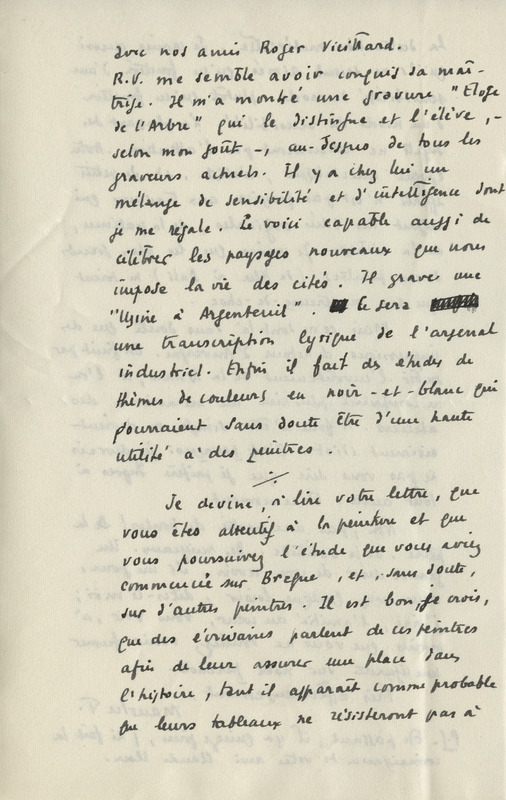 avec nos amis Roger Vieillard.
R.V. me semble avoir conquis sa maî-
trise. Il m'a montré une gravure "Eloge
de l'Arbre" qui le distingue et l'élève, -
selon mon goût -, au-dessus de tous les
graveurs actuels. Il y a chez lui un
mélange de sensibilité et d'intelligence dont
je me régale. Le voici capable aussi de
célébrer les paysages nouveaux que nous
impose la vie des cités. Il grave une
"Usine à Argenteuil". Ce sera
une transcription lyrique de l'arsenal
industriel. Enfin il fait des études de
thèmes de couleurs en noir-et-blanc qui
pourraient sans doute être d'une haute
utilité à des peintres.
Je devine, à lire votre lettre, que
vous êtes attentif à la peinture et que
vous poursuivez l'étude que vous aviez
commencée sur Braque, et, sans doute,
sur d'autres peintres. Il est bon, je crois,
que des écrivains parlent de ces peintres
afin de leur assurer une place dans
l'histoire, tant il apparaît comme probable
que leurs tableaux ne résisteront pas à